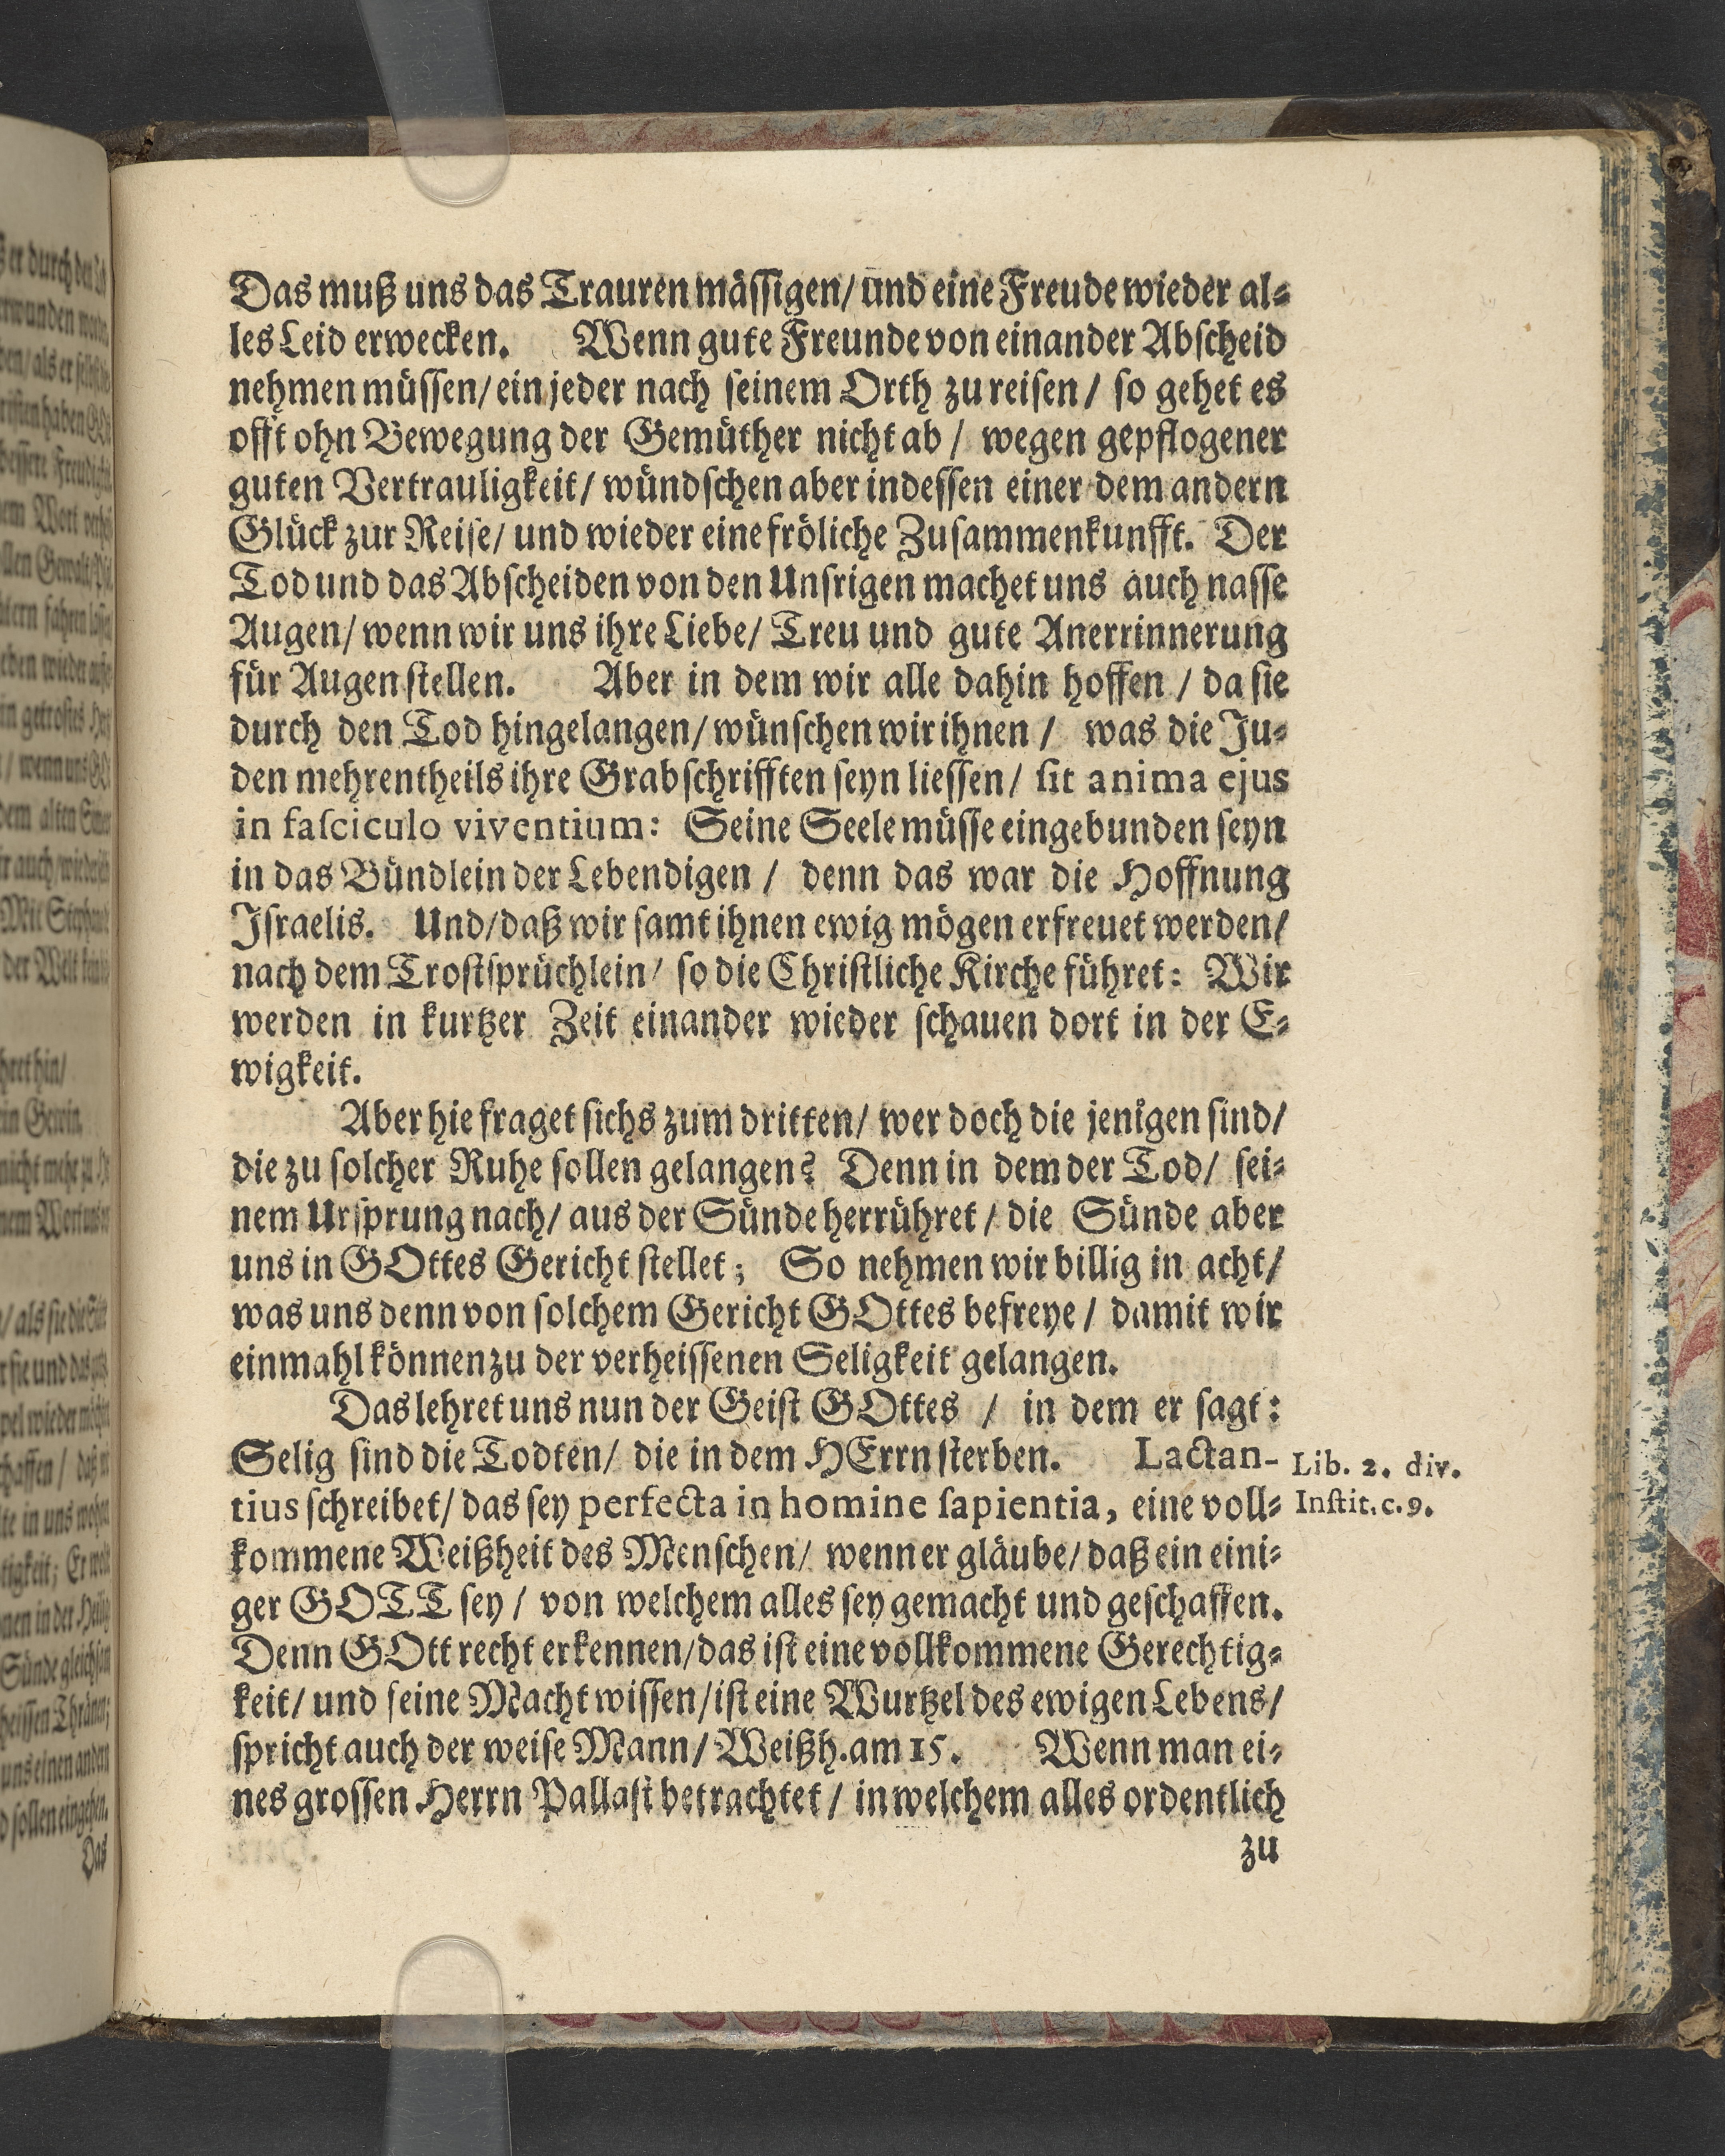 Das muß uns das Trauren mässigen/ und eine Freude wieder al-
les Leid erwecken. Wenn gute Freunde von einander Abscheid
nehmen müssen/ ein jeder nach seinem Orth zu reisen/ so gehet es
offt ohn Bewegung der Gemüther nicht ab/ wegen gepflogener
guten Vertrauligkeit/ wündschen aber indessen einer dem andern
Glück zur Reise/ und wieder eine fröliche Zusammenkunfft. Der
Tod und das Abscheiden von den Unsrigen machet uns auch nasse
Augen/ wenn wir uns ihre Liebe/ Treu und gute Anerrinnerung
für Augen stellen. Aber in dem wir alle dahin hoffen/ da sie
durch den Tod hingelangen/ wünschen wir ihnen/ was die Ju-
den mehrentheils ihre Grabschrifften seyn liessen/ sit anima ejus
in fasciculo viventium: Seine Seele müsse eingebunden seyn
in das Bündlein der Lebendigen/ denn das war die Hoffnung
Israelis. Und/ daß wir samt ihnen ewig mögen erfreuet werden/
nach dem Trostsprüchlein/ so die Christliche Kirche führet: Wir
werden in kurtzer Zeit einander wieder schauen dort in der E-
wigkeit.
Aber hie fraget sichs zum dritten/ wer doch die jenigen sind/
die zu solcher Ruhe sollen gelangen? Denn in dem der Tod/ sei-
nem Ursprung nach/ aus der Sünde herrühret/ die Sünde aber
uns in GOttes Gericht stellet; So nehmen wir billig in acht/
was uns denn von solchem Gericht GOttes befreye/ damit wir
einmahl können zu der verheissenen Seligkeit gelangen.
Das lehret uns nun der Geist GOttes/ in dem er sagt:
Selig sind die Todten/ die in dem HErrn sterben. Lactan-
tius schreibet/ das sey perfecta in homine sapientia, eine voll-
kommene Weißheit des Menschen/ wenn er gläube/ daß ein eini-
ger GOTT sey/ von welchem alles sey gemacht und geschaffen.
Denn GOtt recht erkennen/ das ist eine vollkommene Gerechtig-
keit/ und seine Macht wissen/ ist eine Wurtzel des ewigen Lebens/
spricht auch der weise Mann/ Weißh. am 15. Wenn man ei-
nes grossen Herrn Pallast betrachtet/ in welchem alles ordentlich
zu
Lib. 2. div.
Instit. c. 9.